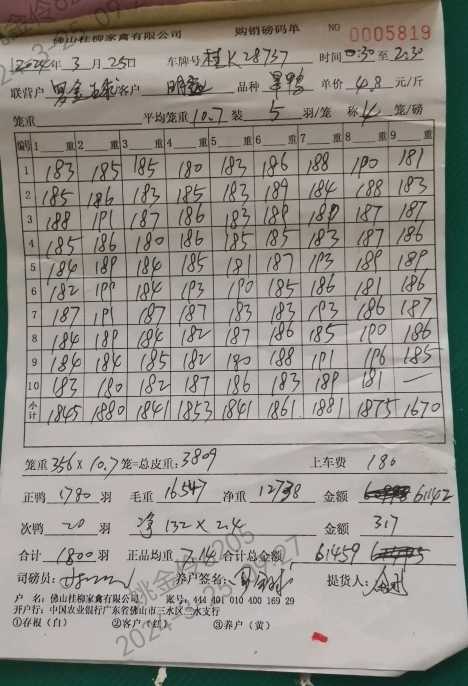 佛山桂柳家禽有限公司 购销磅码单 NO 0005819
2024年 3 月 25日 车牌号 桂K28737 时间 0:30 至 2:30
联营户 客户 品种 单价 4.8 元/斤
笼重 平均笼重 10.7 装 5 羽/笼 称 4 笼/磅
编号 1 重 2 重 3 重 4 重 5 重 6 重 7 重 8 重 9 重
1 183 185 185 180 183 186 188 190 181
2 185 186 183 185 183 189 184 188 183
3 188 191 187 186 183 189 188 187 187
4 185 186 180 186 185 185 183 187 186
5 184 189 184 185 181 187 193 189 189
6 182 190 184 193 190 185 186 181 186
7 187 191 187 187 183 183 193 186 187
8 184 189 184 182 187 186 185 190 186
9 184 184 185 182 180 188 191 196 185
10 183 180 182 187 186 183 189 181 —
小计 1845 1880 1841 1853 1841 1861 1881 1875 1670
笼重 356 × 10.7 笼=总皮重: 3809 上车费 180
正鸭 1780 羽 毛重 16547 净重 12738 金额 61142
次鸭 20 羽 净 132 × 2.4 金额 317
合计 1800 羽 正品均重 7.14 合计总金额 61459
司磅员: 养户签名: 提货人:
户 名: 佛山桂柳家禽有限公司 账号: 444 401 010 400 169 29
开户行: 中国农业银行广东省佛山市三水区三水支行
①存根(白) ②客户(红) ③养户(黄)
姚金伶8205